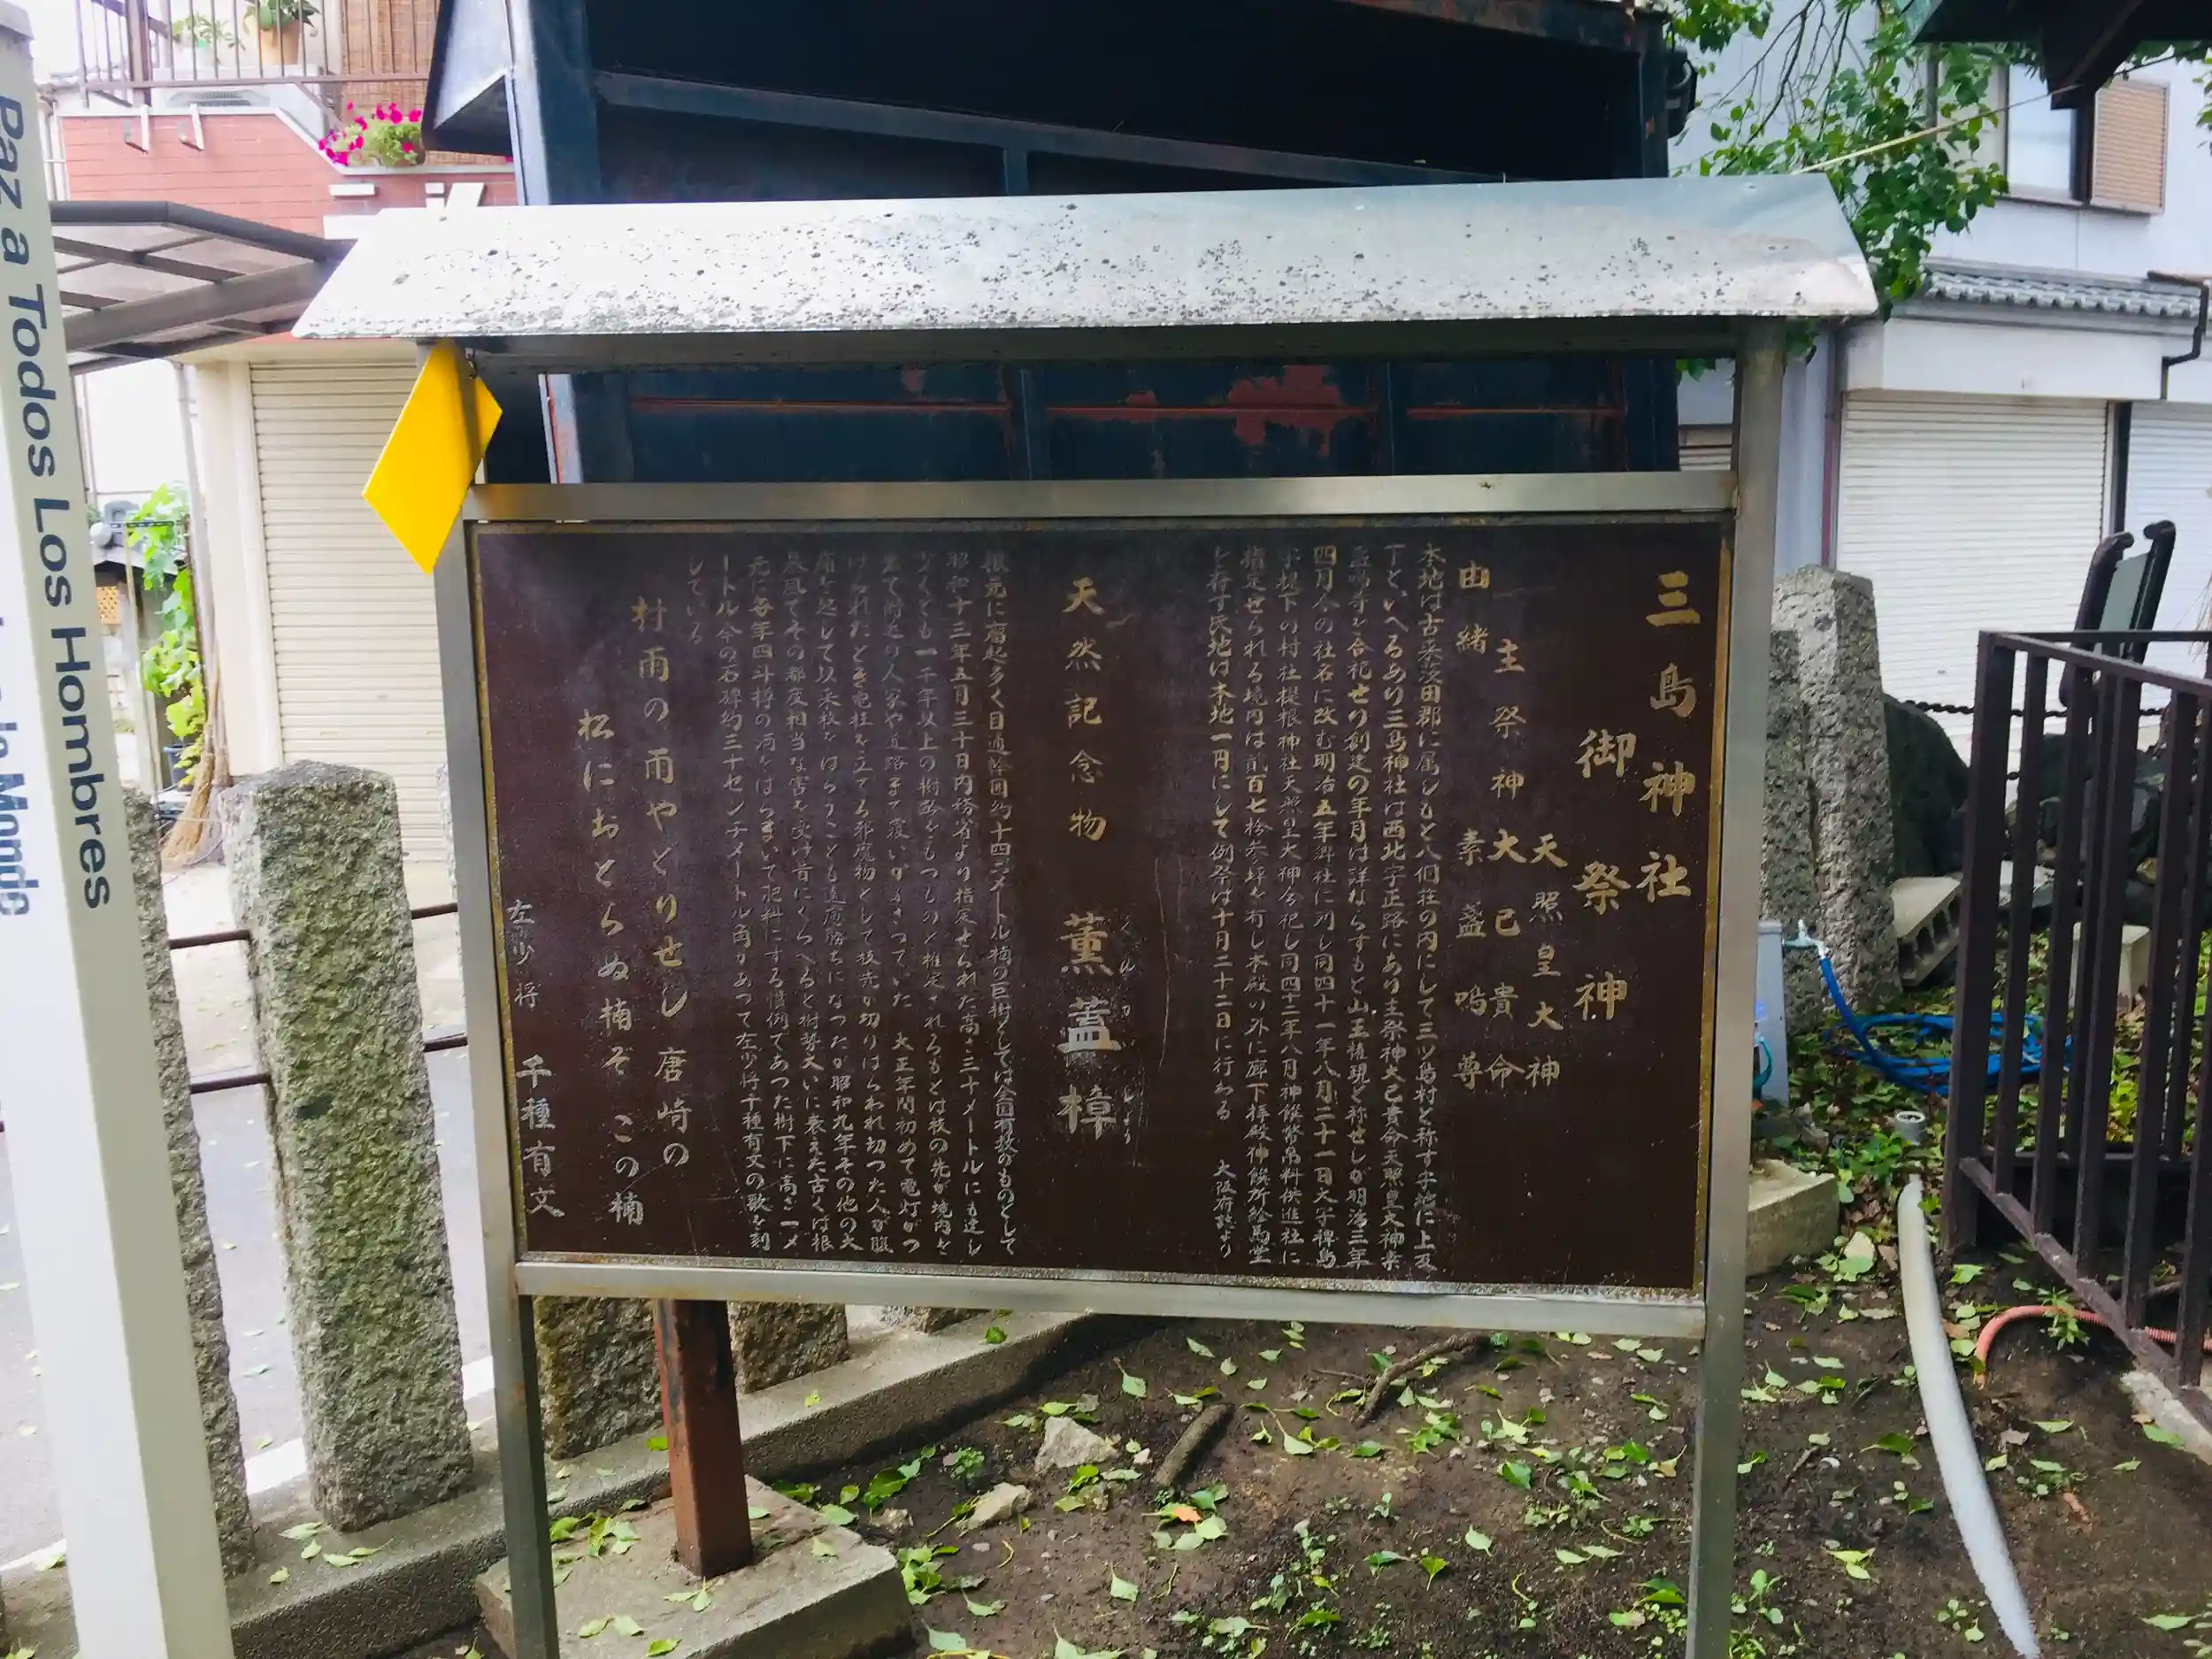 三島神社
御祭神
天照皇大神
主祭神 大己貴命
素盞嗚尊
由緒
本地は古来茨田郡に属しもと八個荘の内にして三ツ島村と称す字地に上及
下といへるあり三島神社は西北字正路にあり主祭神大己貴命天照皇大神素
盞嗚尊を合祀せり創建の年月は詳ならずもと山王権現と称せしが明治三年
四月今の社名に改む明治五年村社に列し同四十一年八月二十一日大字稗島
字堤下の村社堤根神社天照皇大神合祀し同四十二年八月神饌幣帛料供進社に
指定せられる境内は貳百七拾参坪を有し本殿の外に廊下拝殿神饌所絵馬堂
を存す氏地は本地一円にして例祭は十月二十二日に行わる 大阪府誌より
天然記念物 薫蓋樟
くんがいしょう
根元に瘤起多く目通幹囲約十四メートル楠の巨樹としては全国有数のものとして
昭和十三年五月三十日内務省より指定せられた高さ三十メートルにも達し
少くとも一千年以上の樹齢をもつものと推定されるもとは枝の先が境内を
出て附近の人家や道路まで覆いかぶさっていた 大正年間初めて電灯がつ
けられたとき電柱を立てる邪魔物として枝先が切りはらわれ切つた人が眼
病を起して以来枝をはらうことも遠慮勝ちになつたが昭和九年その他の大
暴風でその都度相当な害を受け昔にくらべると樹勢大いに衰えた古くは根
元に毎年四斗樽の酒をはつまいて肥料にする慣例であつた樹下に高さ一メ
ートル余の石碑約三十センチメートル角があつて左少将千種有文の歌を刻
している
村雨の雨やどりせし唐崎の
松におとらぬ楠ぞ この楠
左少将 千種有文
Paz a Todos Los Hombres